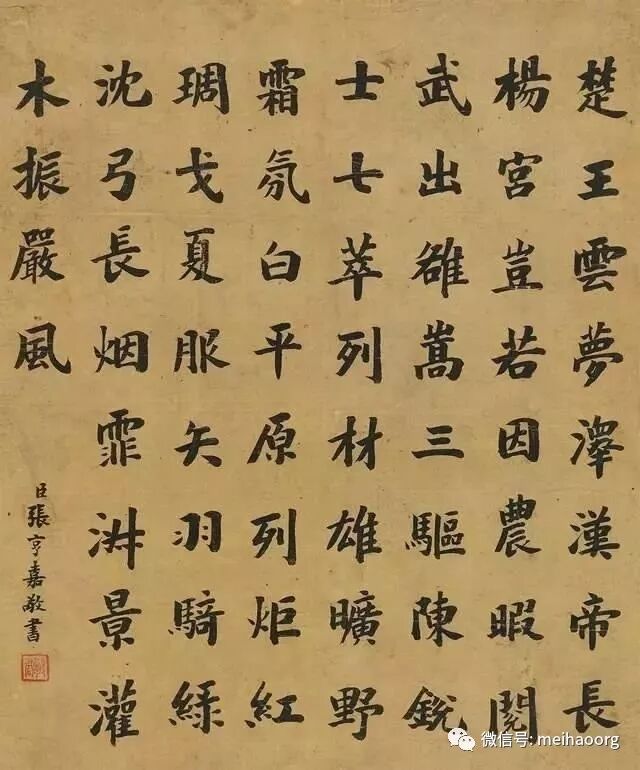 楚王雲夢澤漢帝長
楊宮豈若因農暇閱
武出嵩三驅陳銳
士七萃列材雄曠野
霜氛白平原列炬紅
琱戈夏服矢羽騎緑
沈弓長烟霏景灌
木振嚴風
臣張亨嘉敬書
微信号: meihaoorg